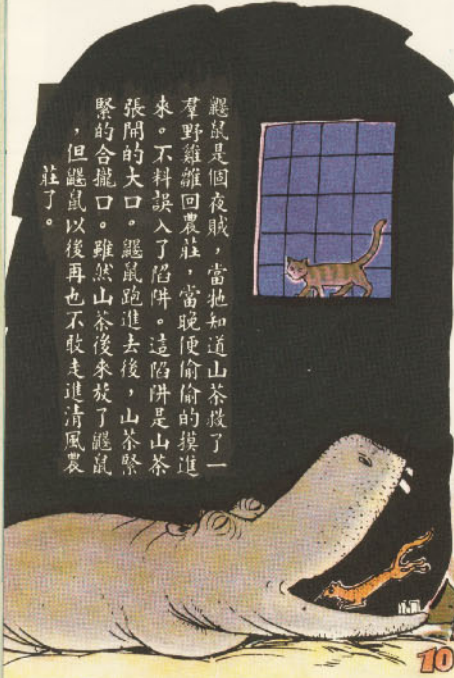 鼴鼠是個夜賊,當牠知道山茶救了一
羣野雞雛回農莊,當晚便偷偷的摸進
來。不料誤入了陷阱。這陷阱是山茶
張開的大口。鼴鼠跑進去後,山茶緊
緊的合攏口。雖然山茶後來放了鼴鼠
,但鼴鼠以後再也不敢走進清風農
莊了。
10